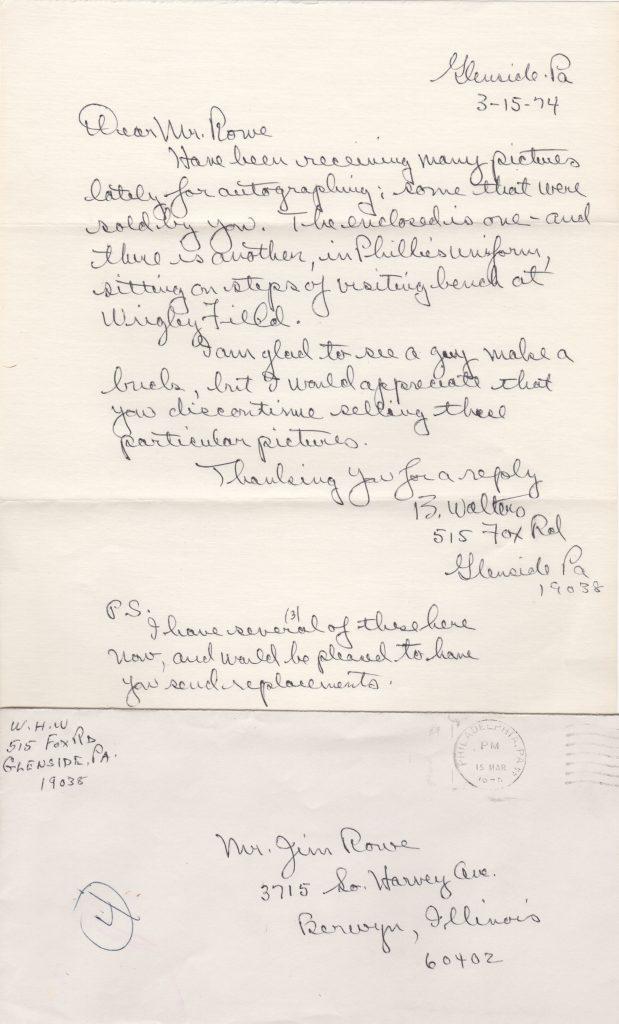 Glenside. Pa
3-15-74
Dear Mr. Rowe
Have been receiving many pictures
lately for autographing; some that were
sold by you. The enclosed is one - and
there is another, in Phillies uniform,
sitting on steps of visiting bench at
Wrigley Field.
I am glad to see a guy make a
buck, but I would appreciate that
you discontinue selling these
particular pictures.
Thanking you for a reply
B. Walters
515 Fox Rd
Glenside Pa
19038
P.S.
I have several (3) of these here
now, and would be pleased to have
you send replacements.
W.H.W
515 Fox Rd
Glenside, Pa.
19038
PHILADELPHIA, PA
PM
15 MAR
Mr. Jim Rowe
3715 So. Harvey Ave.
Berwyn, Illinois
60402